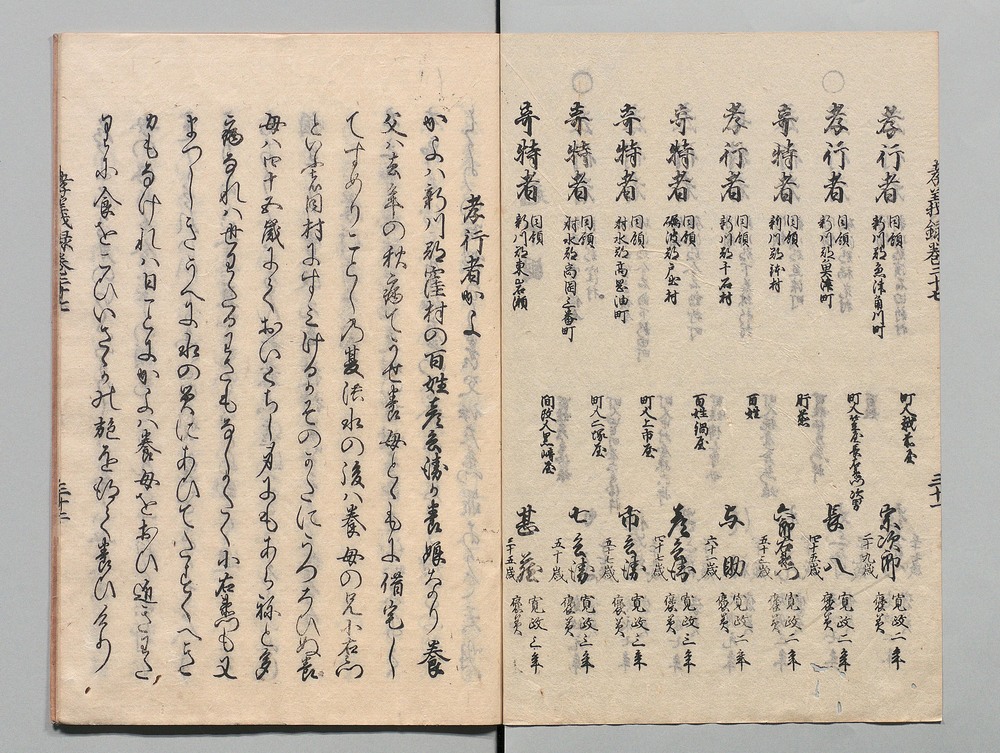 孝義録巻三十七
三十一
孝行者
同領
新川郡魚津角川町
町人
屋
宗次郎
二十九歳
寛政二年
褒美
孝行者
同領
新川郡魚津町
町人
長八
四十五歳
寛政二年
褒美
奇特者
同領
新川郡
村
肝煎
五十三歳
寛政二年
褒美
孝行者
同領
新川郡千石村
百姓
与助
六十一歳
寛政二年
褒美
奇特者
同領
礪波郡戸出村
百姓鍋屋
彦兵衛
四十七歳
寛政三年
褒美
奇特者
同領
射水郡高岡油町
町人上市屋
市兵衛
五十七歳
寛政三年
褒美
奇特者
同領
射水郡高岡三番町
町人二塚屋
七兵衛
五十歳
寛政三年
褒美
奇特者
同領
新川郡東岩瀬
間改人黒崎屋
甚蔵
三十五歳
寛政三年
褒美
孝行者かよ
かよハ新川郡窪村の百姓彦兵衛か養娘なり養
父ハ去年の秋病てうせ養母とゝもに借宅し
てすめりことし乃夏洪水の後ハ養母の兄小右衛門
といふ者同村にすミけるかそのかたにうつろひぬ養
母ハ四十五歳にておいくちし身にもあらねと多
病なれハ世わたるわさもなしかたく小右衛門も又
まつしきうへに水の災にあひてたすくへき
力もなけれハ日ことにかよハ養母をおひ道さまた
けに食をこひいさゝかの施を得て養ひけり
孝義録巻三十七
三十二